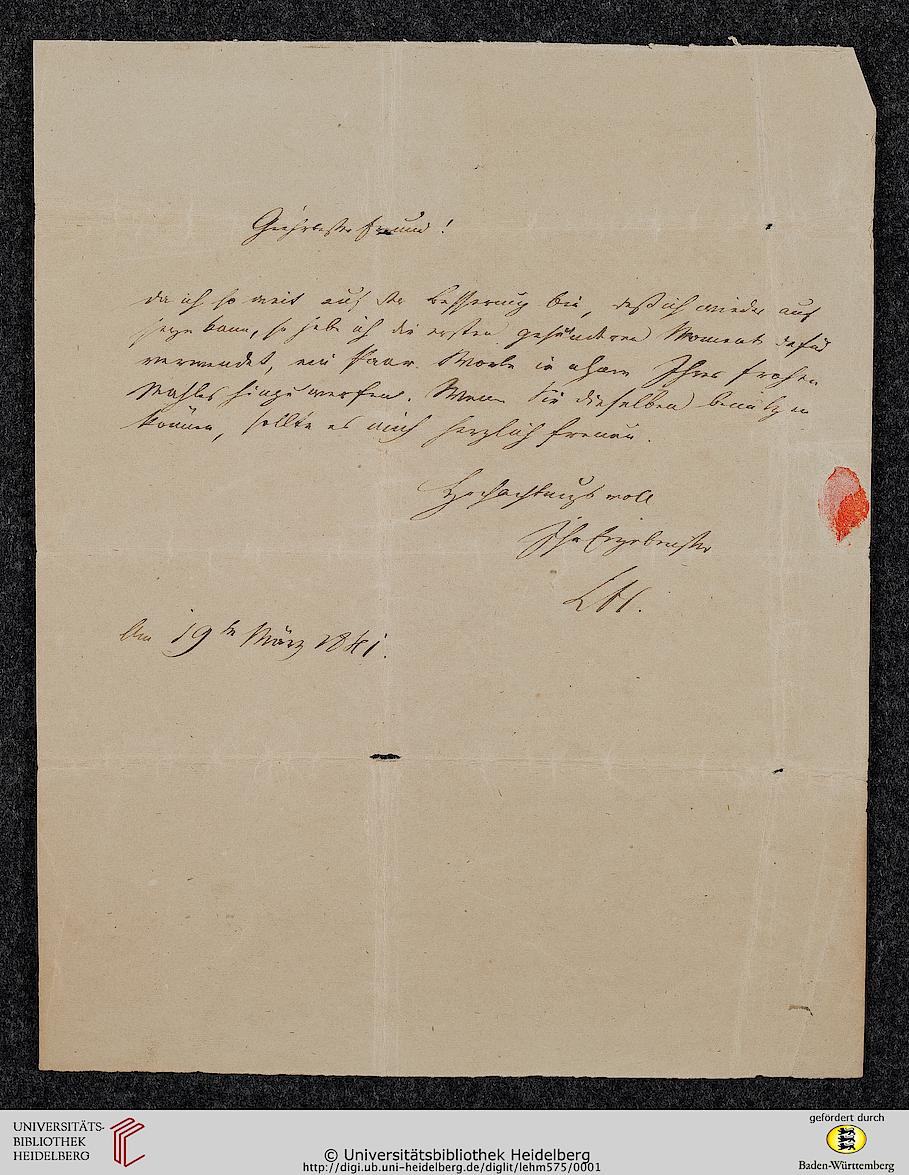 Geehrtester Freund!
da ich so weit auf der Besserung bin, daß ich wieder auf
seyn kann, so habe ich die ersten gesünderen Momente dafür
verwendet, ein Paar Worte in Ihres frohen
Mahles hinzuwerfen. Wenn Sie dieselben benützen
können, sollte es mich herzlich freuen.
Hochachtungsvoll
Ihr Ergebenster
Am 19ten März 1841.
UNIVERSITÄTS-
BIBLIOTHEK
HEIDELBERG
© Universitätsbibliothek Heidelberg
http://digi.ub.uni-heidelberg.de/diglit/lehm575/0001
gefördert durch
Baden-Württemberg